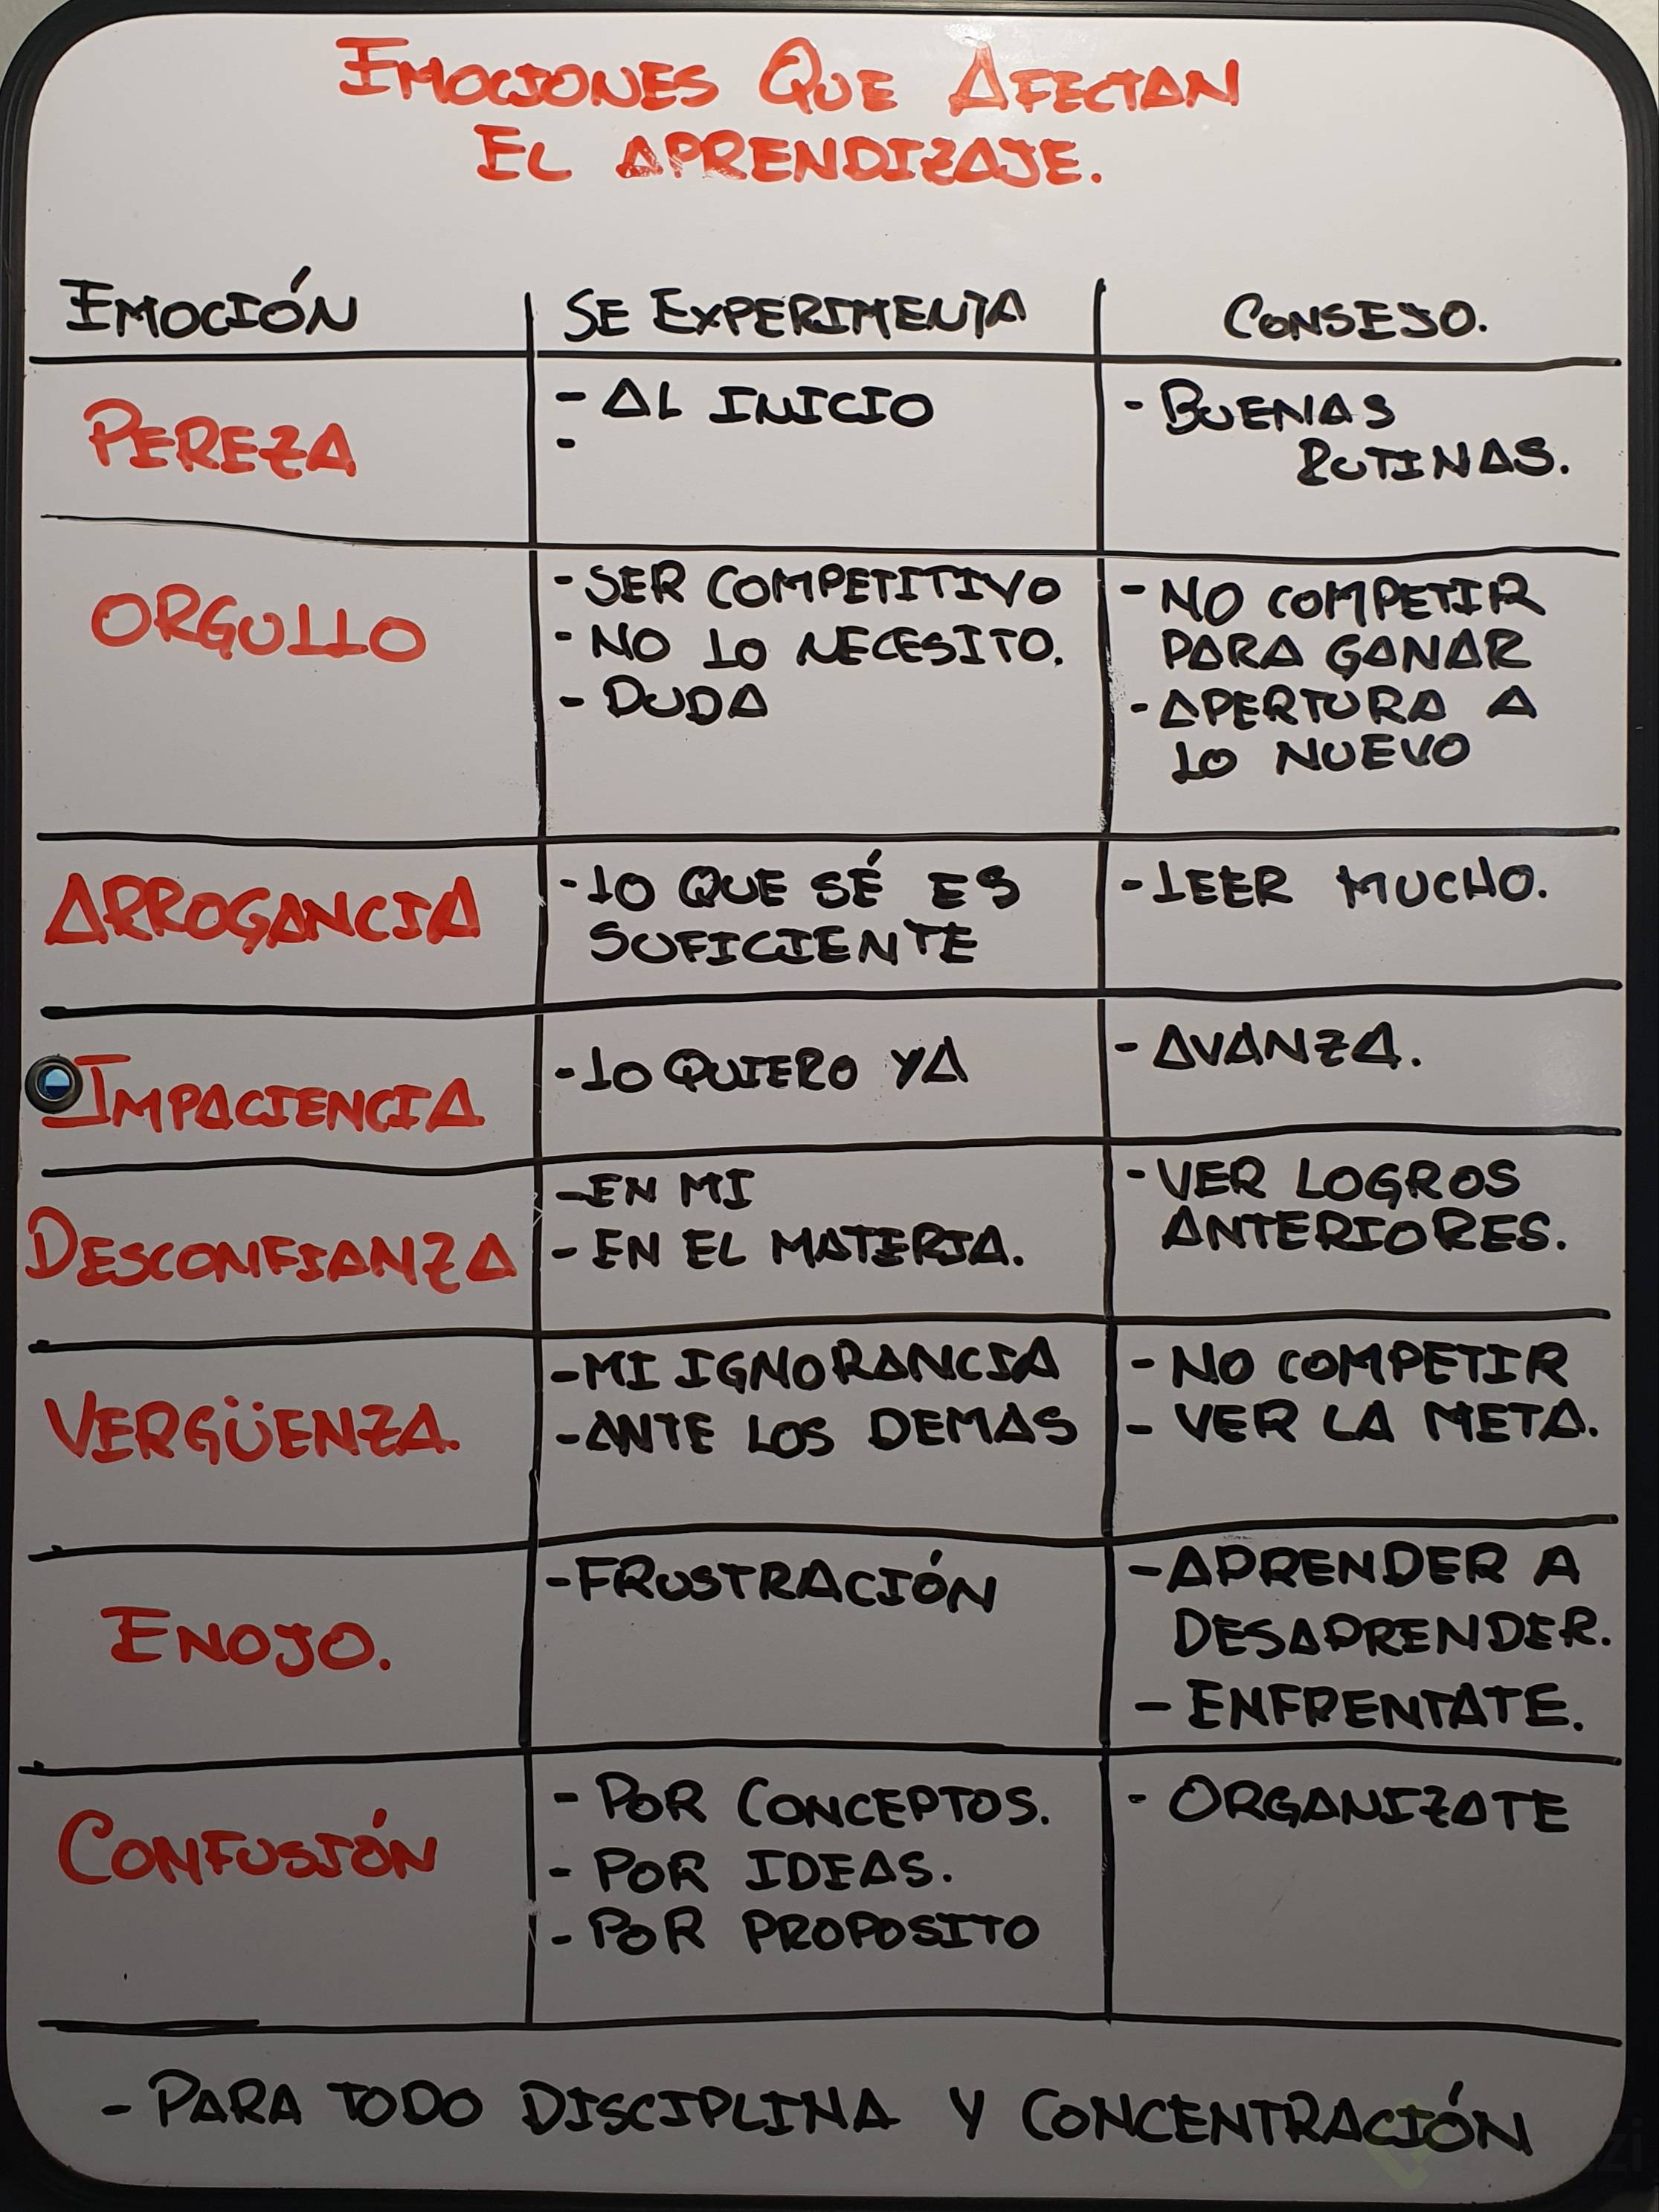 EMOCIONES QUE AFECTAN
EL APRENDIZAJE.
EMOCIÓN
SE EXPERIMENTA
CONSEJO.
PEREZA
- AL INICIO
-
- BUENAS
RUTINAS.
ORGULLO
- SER COMPETITIVO
- NO LO NECESITO.
- DUDA
- NO COMPETIR
PARA GANAR
- APERTURA A
LO NUEVO
ARROGANCIA
- LO QUE SÉ ES
SUFICIENTE
- LEER MUCHO.
IMPACIENCIA
- LO QUIERO YA
- AVANZA.
DESCONFIANZA
- EN MI
- EN EL MATERIA.
- VER LOGROS
ANTERIORES.
VERGÜENZA.
- MI IGNORANCIA
- ANTE LOS DEMAS
- NO COMPETIR
- VER LA META.
ENOJO.
- FRUSTRACIÓN
- APRENDER A
DESAPRENDER.
- ENFRENTATE.
CONFUSIÓN
- POR CONCEPTOS.
- POR IDEAS.
- POR PROPOSITO
- ORGANIZATE
- PARA TODO DISCIPLINA Y CONCENTRACIÓN